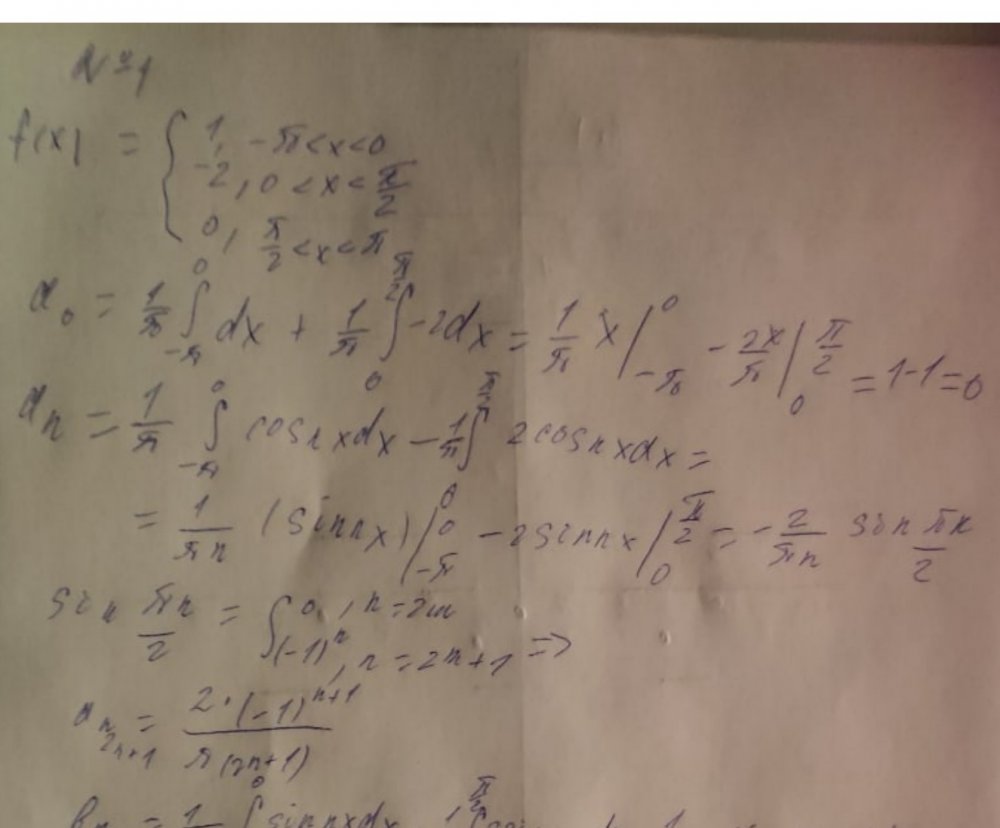 №1
f(x) = { 1, -π<x<0
-2, 0<x<π/2
0, π/2<x<π
a₀ = 1/π ∫_{-π}^{0} dx + 1/π ∫_{0}^{π/2} -2dx = 1/π x |_{-π}^{0} - 2x/π |_{0}^{π/2} = 1-1=0
aₙ = 1/π ∫_{-π}^{0} cosnxdx - 1/π ∫^{π/2} 2cosnxdx =
= 1/πn (sinnx) |_{-π}^{0} - 2sinnx |_{0}^{π/2} = - 2/πn sin πn/2
sin πn/2 = { 0, n=2m
(-1)ⁿ, n=2n+1 =>
a_{2n+1} = 2·(-1)^{n+1} / π(2n+1)
bₙ = 1 ∫^{0} sinnxdx